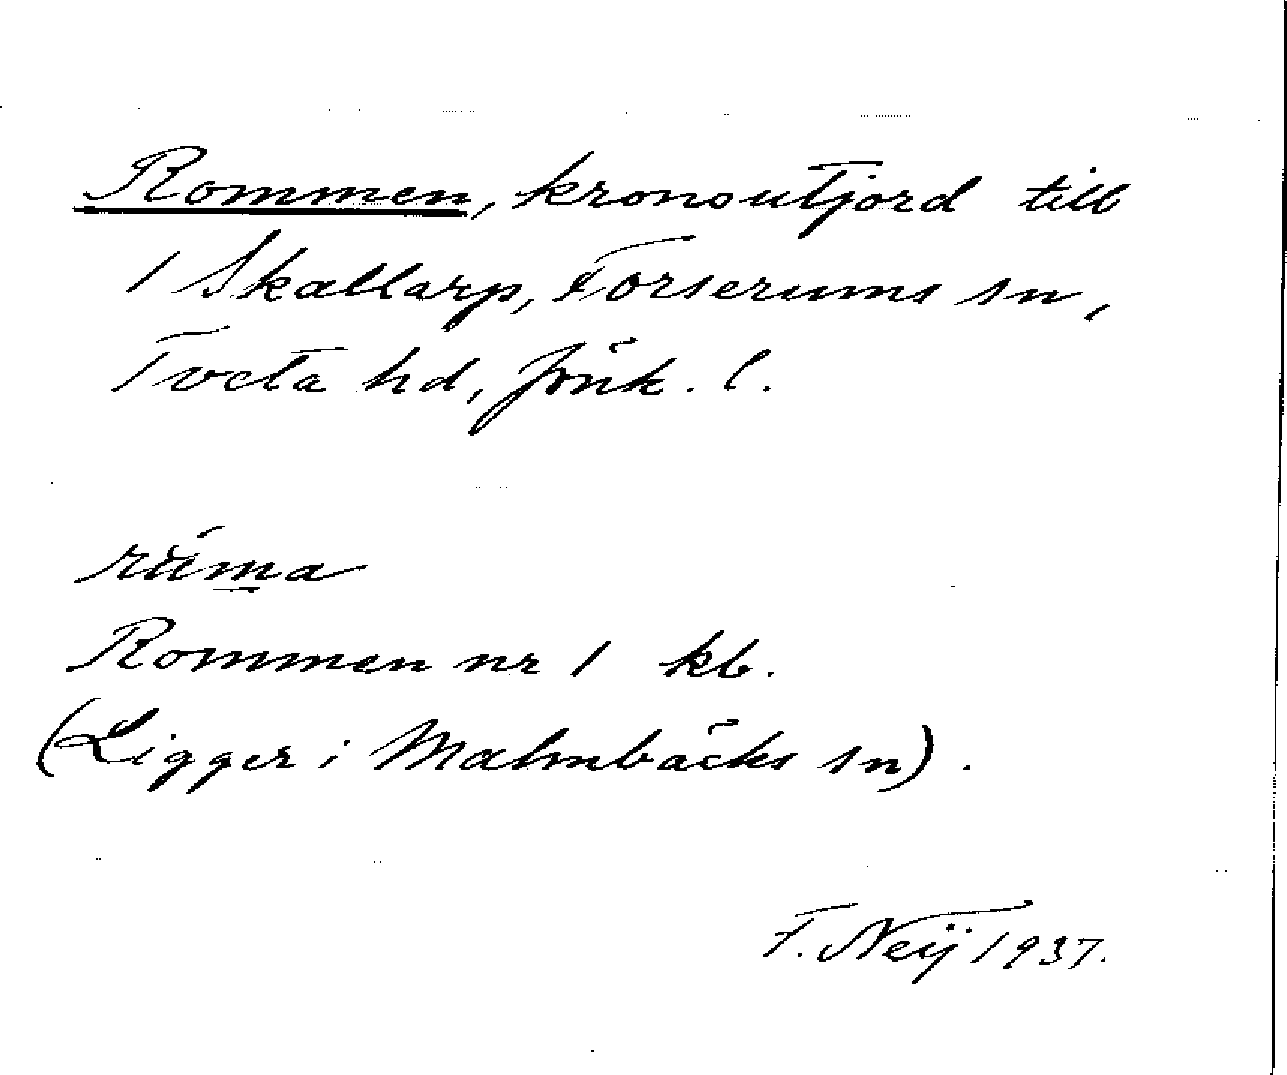 Rommen, kronoutjord till
1 Skallarp, Forserums sn,
Tveta hd, Jönk. l.
rúma
Rommen nr 1 kb.
(Ligger i Malmbäcks sn).
F. Neij 1937.